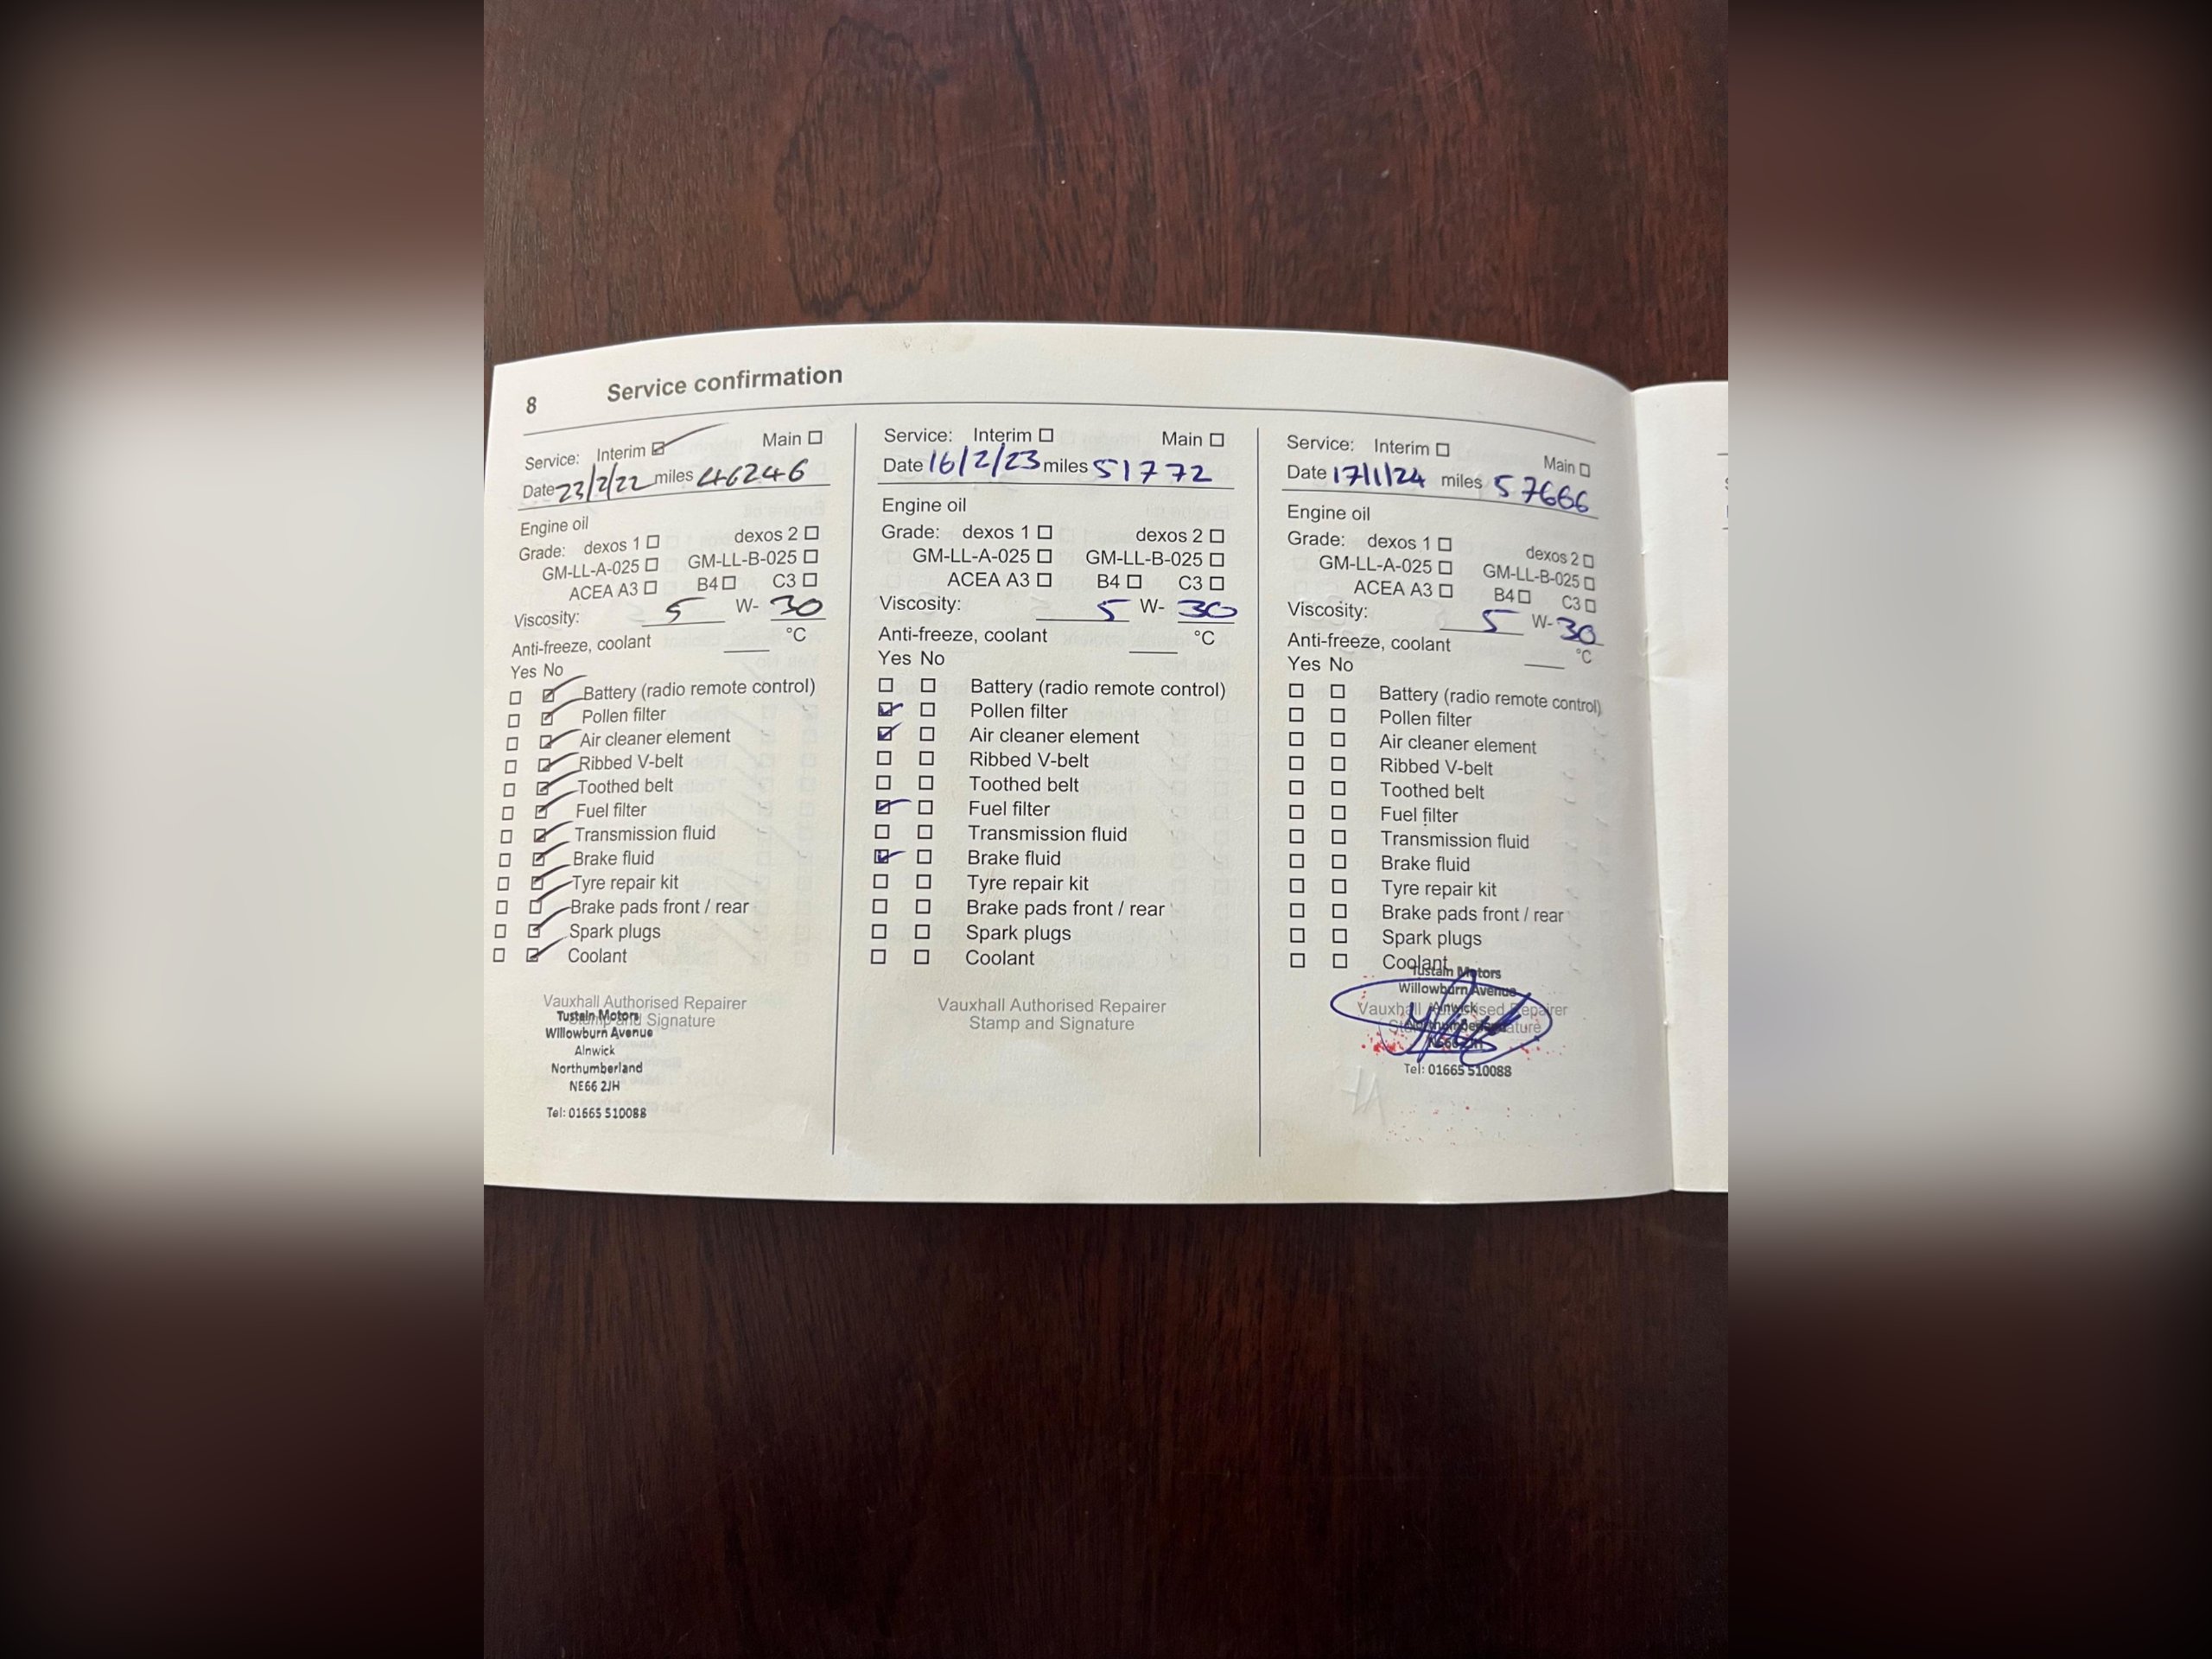 8 Service confirmation
Service: Interim ☑ Main ☐
Date 23/2/22 miles 46246
Engine oil
Grade: dexos 1 ☐ dexos 2 ☐
GM-LL-A-025 ☐ GM-LL-B-025 ☐
ACEA A3 ☐ B4 ☐ C3 ☐
Viscosity: 5 W- 30
Anti-freeze, coolant ____ °C
Yes No
☐ ☑ Battery (radio remote control)
☐ ☑ Pollen filter
☐ ☑ Air cleaner element
☐ ☑ Ribbed V-belt
☐ ☑ Toothed belt
☐ ☑ Fuel filter
☐ ☑ Transmission fluid
☐ ☑ Brake fluid
☐ ☑ Tyre repair kit
☐ ☑ Brake pads front / rear
☐ ☑ Spark plugs
☐ ☑ Coolant
Vauxhall Authorised Repairer
Stamp and Signature
Tustain Motors
Willowburn Avenue
Alnwick
Northumberland
NE66 2JH
Tel: 01665 510088
Service: Interim ☐ Main ☐
Date 16/2/23 miles 51772
Engine oil
Grade: dexos 1 ☐ dexos 2 ☐
GM-LL-A-025 ☐ GM-LL-B-025 ☐
ACEA A3 ☐ B4 ☐ C3 ☐
Viscosity: 5 W- 30
Anti-freeze, coolant ____ °C
Yes No
☐ ☐ Battery (radio remote control)
☑ ☐ Pollen filter
☑ ☐ Air cleaner element
☐ ☐ Ribbed V-belt
☐ ☐ Toothed belt
☑ ☐ Fuel filter
☐ ☐ Transmission fluid
☑ ☐ Brake fluid
☐ ☐ Tyre repair kit
☐ ☐ Brake pads front / rear
☐ ☐ Spark plugs
☐ ☐ Coolant
Vauxhall Authorised Repairer
Stamp and Signature
Service: Interim ☐ Main ☐
Date 17/1/24 miles 57666
Engine oil
Grade: dexos 1 ☐ dexos 2 ☐
GM-LL-A-025 ☐ GM-LL-B-025 ☐
ACEA A3 ☐ B4 ☐ C3 ☐
Viscosity: 5 W- 30
Anti-freeze, coolant ____ °C
Yes No
☐ ☐ Battery (radio remote control)
☐ ☐ Pollen filter
☐ ☐ Air cleaner element
☐ ☐ Ribbed V-belt
☐ ☐ Toothed belt
☐ ☐ Fuel filter
☐ ☐ Transmission fluid
☐ ☐ Brake fluid
☐ ☐ Tyre repair kit
☐ ☐ Brake pads front / rear
☐ ☐ Spark plugs
☐ ☐ Coolant
Tustain Motors
Willowburn Avenue
Vauxhall Authorised Repairer
Alnwick
Northumberland
Tel: 01665 510088